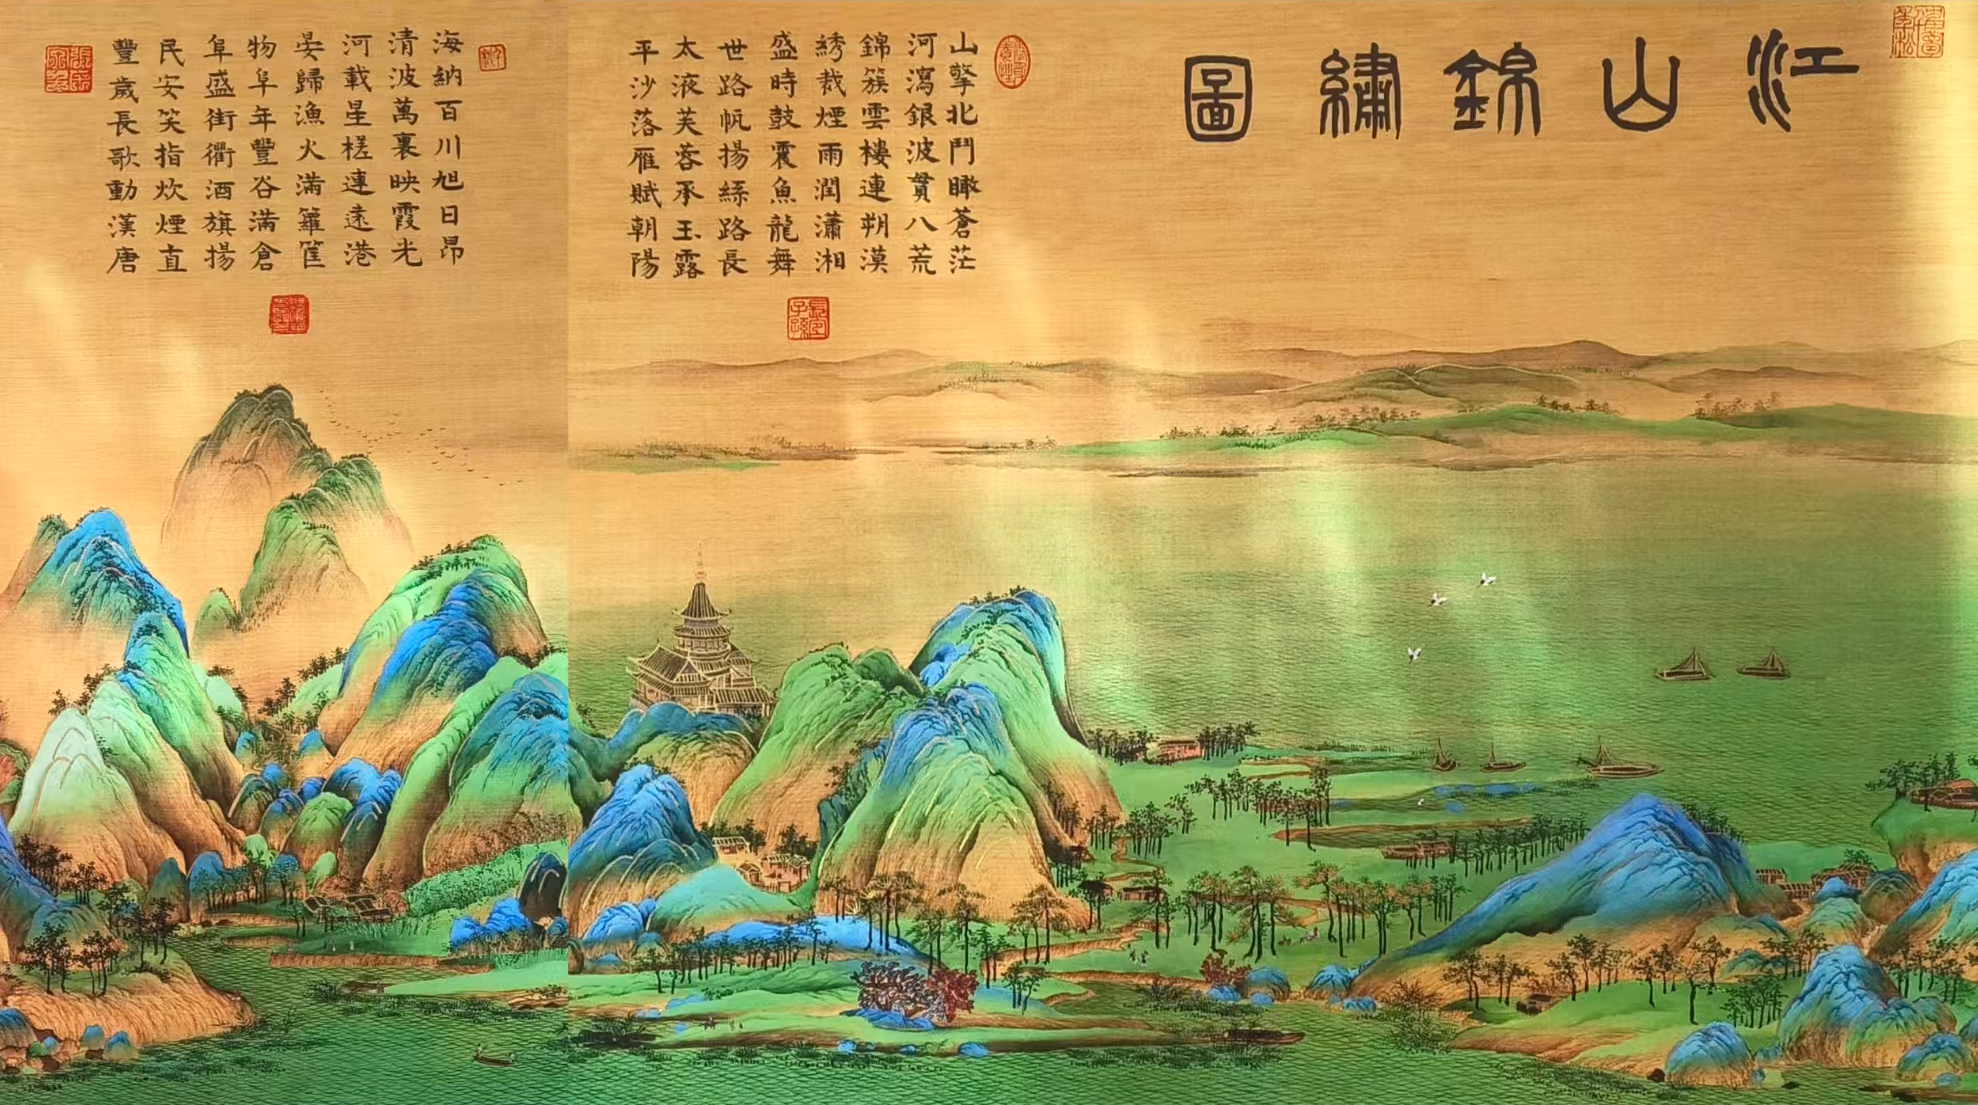 江山錦繡圖
山擎北鬥瞰蒼茫
河瀉銀波貫八荒
錦簇雲樓連朔漠
綉裁煙雨潤瀟湘
盛時鼓震魚龍舞
世路帆揚絲路長
太液芙蓉承玉露
平沙落雁賦朝陽
海納百川旭日昂
清波萬裏映霞光
河載星槎連遠港
晏歸漁火滿籮筐
物阜年豐谷滿倉
阜盛街衢酒旗揚
民安笑指炊煙直
豐歲長歌動漢唐